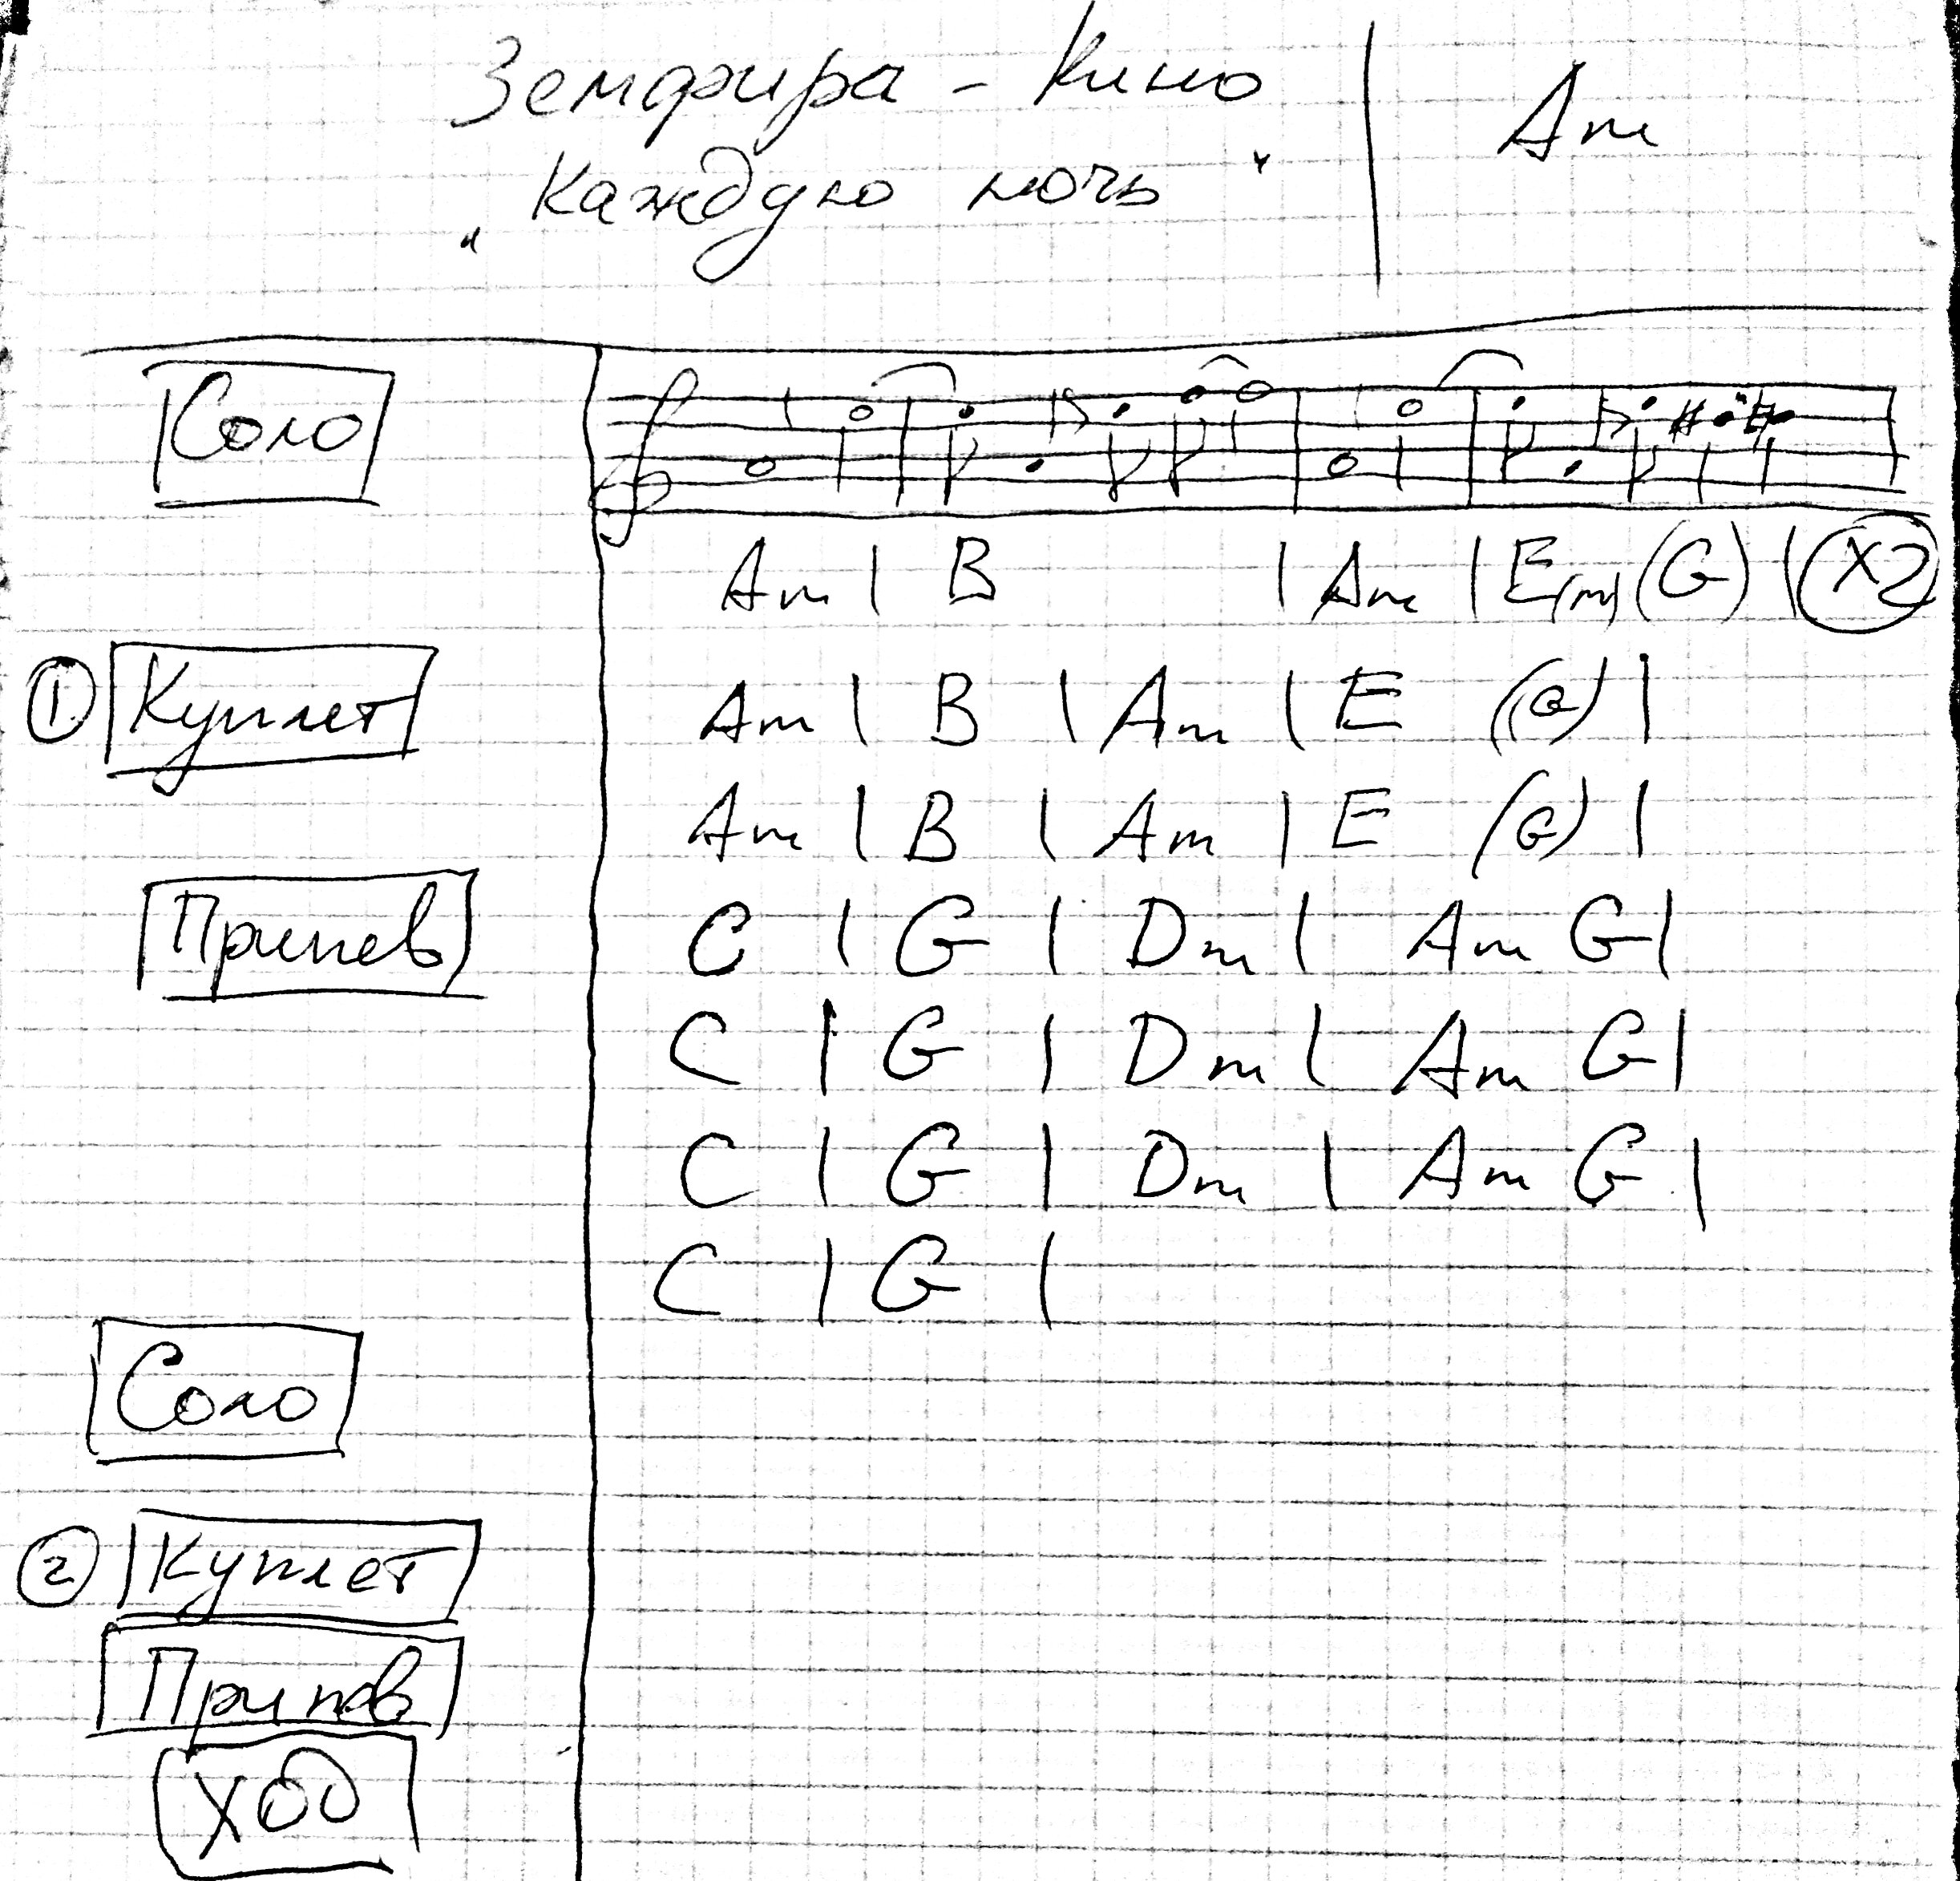 Земфира - Кино | Am
„Каждую ночь"
Соло
Am | B | Am | E(m) (G) | X2
① Куплет Am | B | Am | E (G) |
Am | B | Am | E (G) |
Припев C | G | Dm | Am G |
C | G | Dm | Am G |
C | G | Dm | Am G |
C | G |
Соло
② Куплет
Припев
ХОД